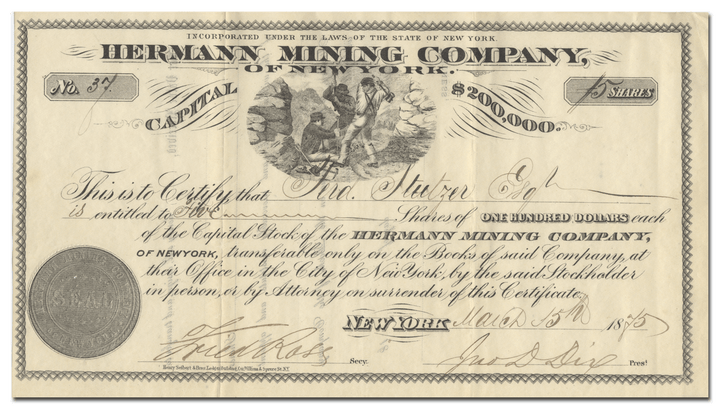 INCORPORATED UNDER THE LAWS OF THE STATE OF NEW YORK.
HERMANN MINING COMPANY,
OF NEW YORK.
No. 37
CAPITAL
$200,000.
5 SHARES
This is to Certify, that Ferd. Stutzer Esq
is entitled to Five Shares of ONE HUNDRED DOLLARS each
of the Capital Stock of the HERMANN MINING COMPANY,
OF NEW YORK, transferable only on the Books of said Company, at
their Office in the City of New York, by the said Stockholder
in person, or by Attorney on surrender of this Certificate.
SEAL
NEW YORK March 15th 1875
Secy.
Jno D Dix Prest